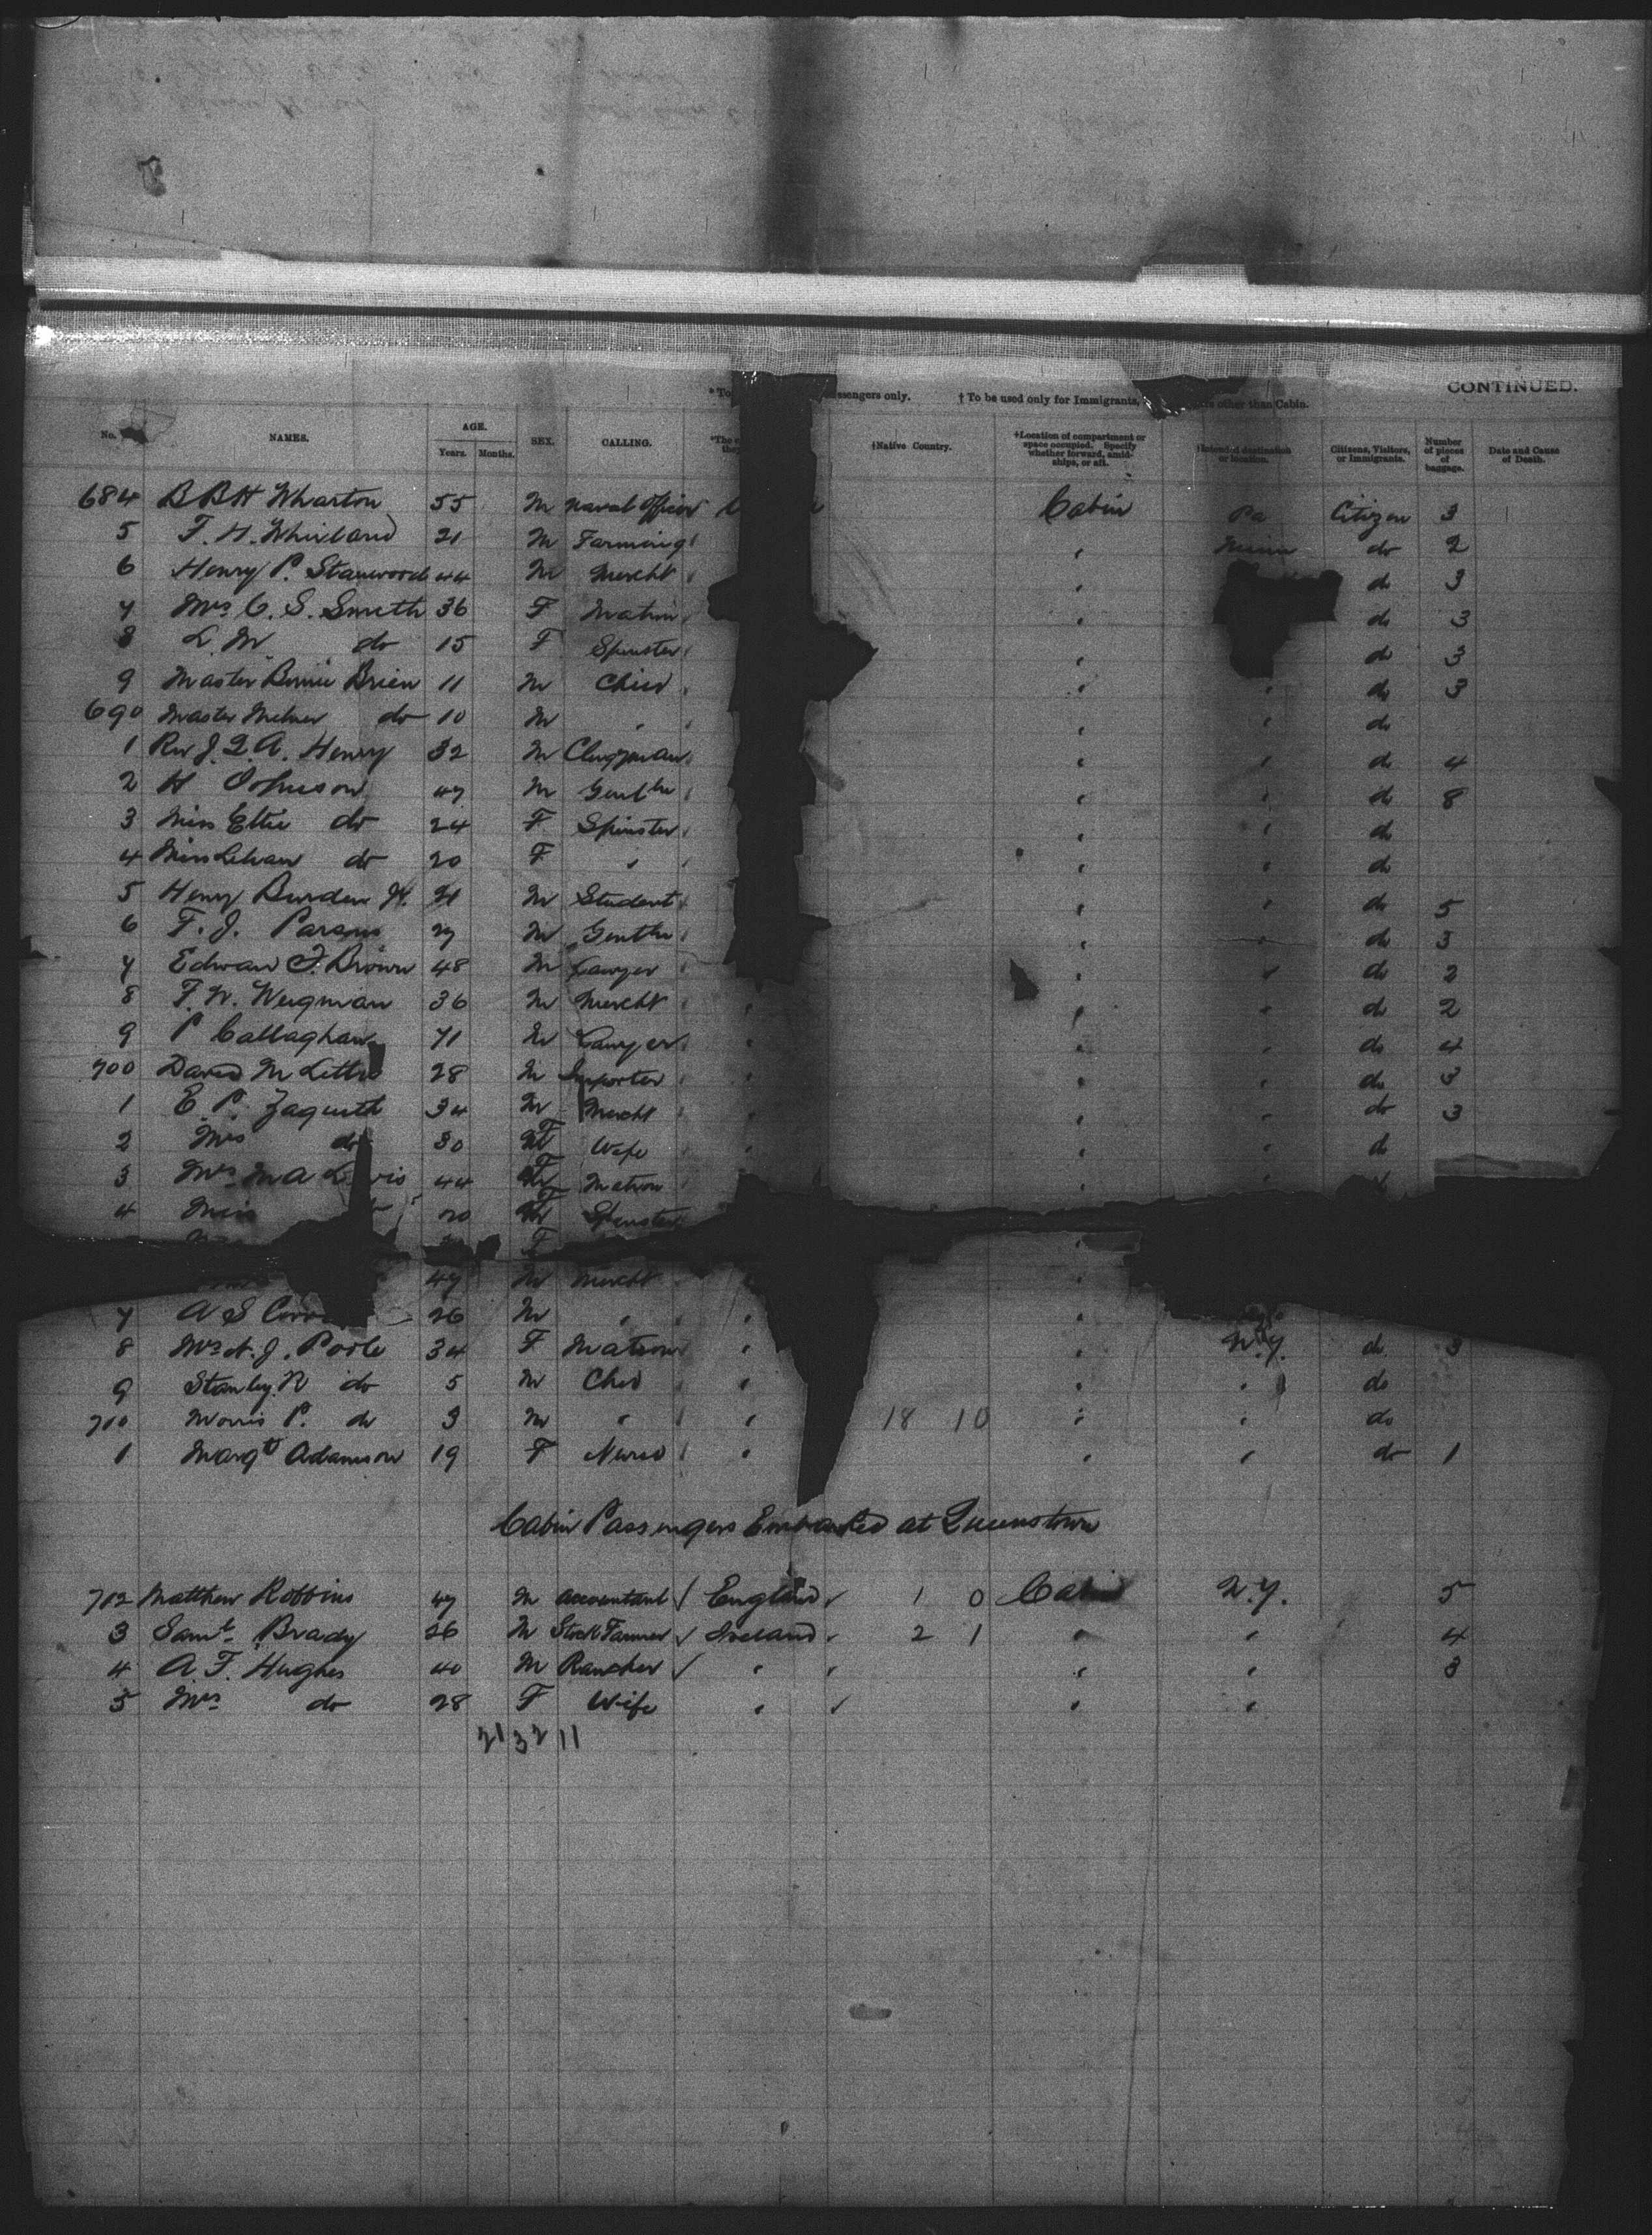 CONTINUED.
*To ssengers only. † To be used only for Immigrants, other than Cabin.
No. NAMES. AGE. Years. Months. SEX. CALLING. †Native Country. †Location of compartment or space occupied. Specify whether forward, amidships, or aft. †Intended destination or location. Citizens, Visitors, or Immigrants. Number of pieces of baggage. Date and Cause of Death.
684 B B H Wharton 55 M Naval Officer Cabin Pa Citizen 3
5 F. H. 21 M Farming " Minn do 2
6 Henry P. Stanwood 44 M Mercht " do 3
7 Mrs C. S. Smith 36 F Matron " do 3
8 L. M. do 15 F Spinster " do 3
9 Master Brien 11 M Child " " do 3
690 Master do 10 M " " " do
1 Rev J. Q. A. Henry 32 M Clergyman " " do 4
2 H Johnson 47 M Gentln " " do 8
3 Miss Ettie do 24 F Spinster " " do
4 Miss do 20 F " " " do
5 Henry Burden Jr. 21 M Student " " do 5
6 F. J. Parsons 27 M Gentln " " do 3
7 Edwar F. Brown 48 M Lawyer " " do 2
8 F. W. 36 M Mercht " " " do 2
9 P Callaghan 71 M Lawyer " " " do 4
700 David M Little 28 M Importer " " " do 3
1 E. P. 34 M Mercht " " " do 3
2 Mrs do 30 F Wife " " " do
3 Mrs M A L vis 44 F Matron "
4 Miss 20 F Spinster
F "
47 M Mercht " "
7 A S 26 M " " "
8 Mrs N. J. Poole 34 F Matron " " N.Y. do 3
9 Stanley R do 5 M Child " " " do
710 Morris P. do 3 M " " 18 10 " " do
1 Margt Adamson 19 F Nurse " " " do 1
Cabin Passengers Embarked at Queenstown
712 Matthew Robbins 47 M Accountant England 1 0 Cabin N.Y. 5
3 Saml Brady 26 M Stock Farmer Ireland 2 1 " " 4
4 A F. Hughes 40 M Rancher " " " 3
5 Mrs do 28 F Wife " " "
21 32 11